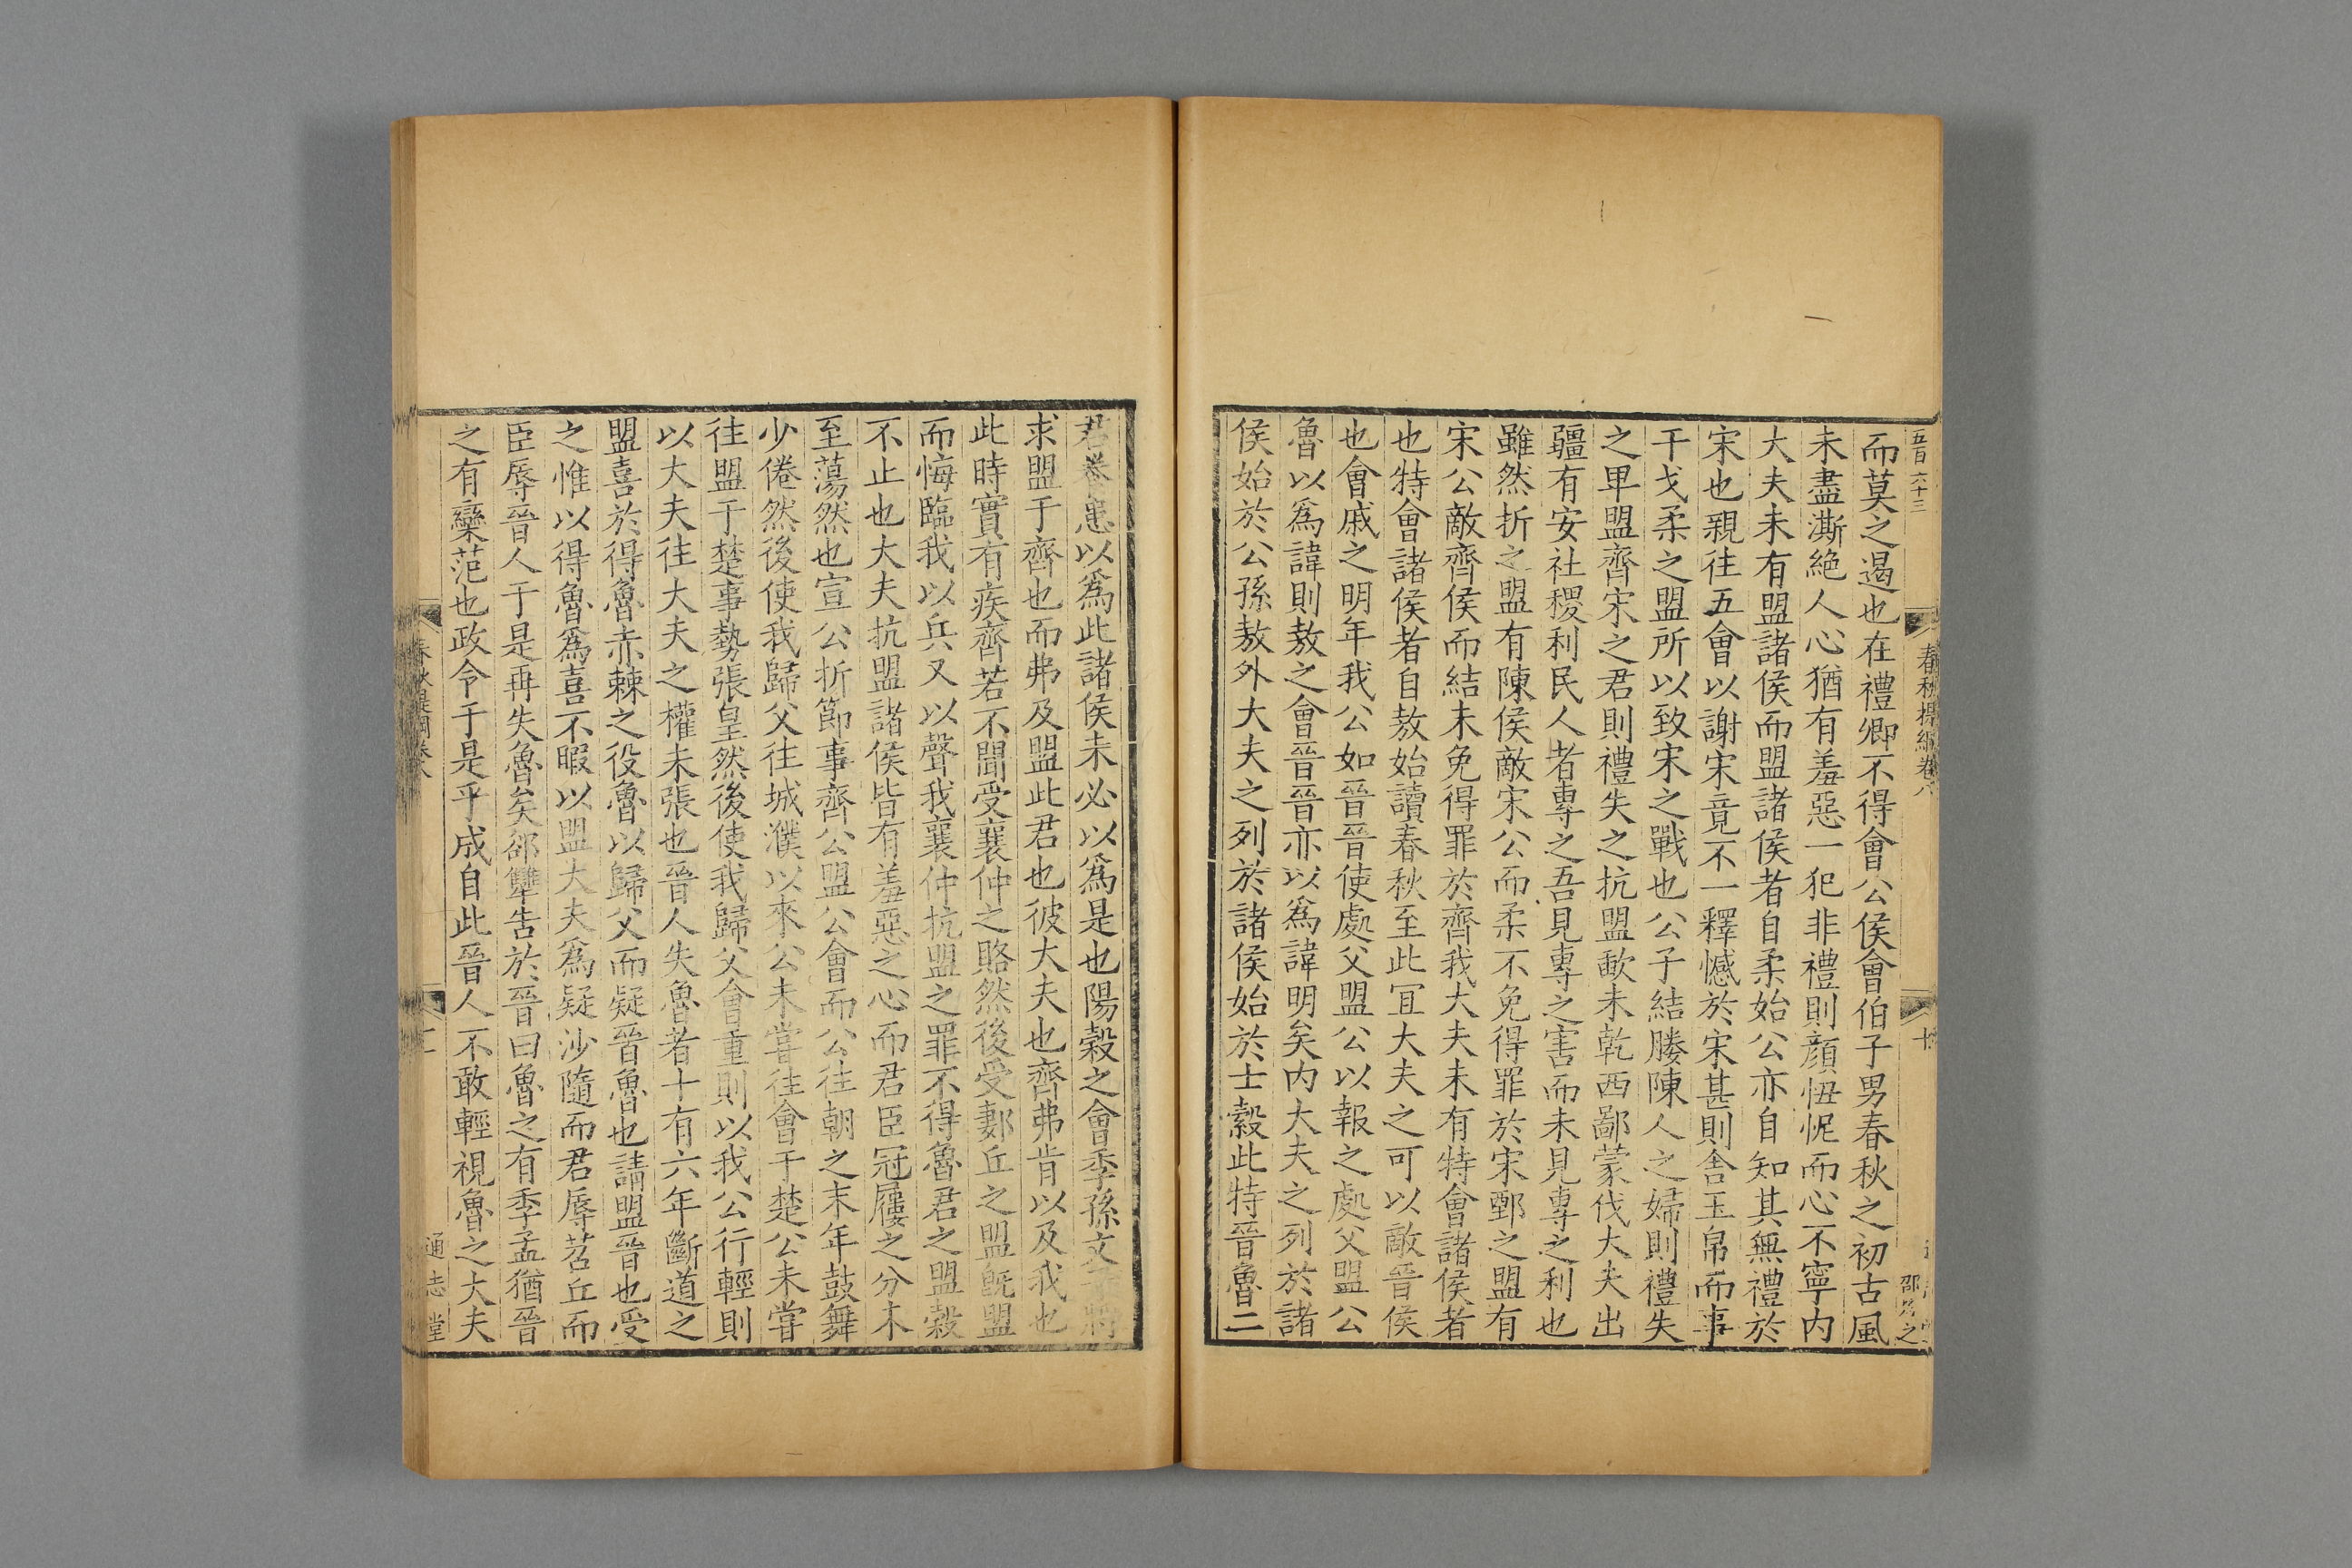 五百六十三
春秋提綱卷八
十
而莫之遏也在禮卿不得會公侯會伯子男春秋之初古風
未盡澌絶人心猶有羞惡一犯非禮則顔忸怩而心不寧内
大夫未有盟諸侯而盟諸侯者自柔始公亦自知其無禮於
宋也親往五會以謝宋竟不一釋憾於宋甚則舎玉帛而事
干戈柔之盟所以致宋之戰也公子結媵陳人之婦則禮失
之卑盟齊宋之君則禮失之抗盟歃未乾西鄙蒙伐大夫出
疆有安社稷利民人者專之吾見專之害而未見專之利也
雖然折之盟有陳侯敵宋公而柔不免得罪於宋鄄之盟有
宋公敵齊侯而結未免得罪於齊我大夫未有特會諸侯者
也特會諸侯者自敖始讀春秋至此冝大夫之可以敵晉侯
也會戚之明年我公如晉晉使處父盟公以報之處父盟公
魯以爲諱則敖之會晉晉亦以爲諱明矣内大夫之列於諸
侯始於公孫敖外大夫之列於諸侯始於士縠此特晉魯二
君以爲此諸侯未必以爲是也陽穀之會季孫文
求盟于齊也而弗及盟此君也彼大夫也齊弗肯以及我也
此時實有疾齊若不聞受襄仲之賂然後受郪丘之盟既盟
而悔臨我以兵又以聲我襄仲抗盟之罪不得魯君之盟穀
不止也大夫抗盟諸侯皆有羞惡之心而君臣冠屨之分木
至蕩然也宣公折節事齊公盟公會而公往朝之末年鼓舞
少倦然後使我歸父往城濮以來公未嘗往會于楚公未嘗
往盟于楚事勢張皇然後使我歸父會重則以我公行輕則
以大夫往大夫之權未張也晉人失魯者十有六年斷道之
盟喜於得魯赤棘之役魯以歸父而疑晉魯也請盟晉也受
之惟以得魯爲喜不暇以盟大夫爲疑沙隨而君辱苕丘而
臣辱晉人于是再失魯矣郤犨告於晉曰魯之有季孟猶晉
之有欒范也政令于是乎成自此晉人不敢輕視魯之大夫
通志堂